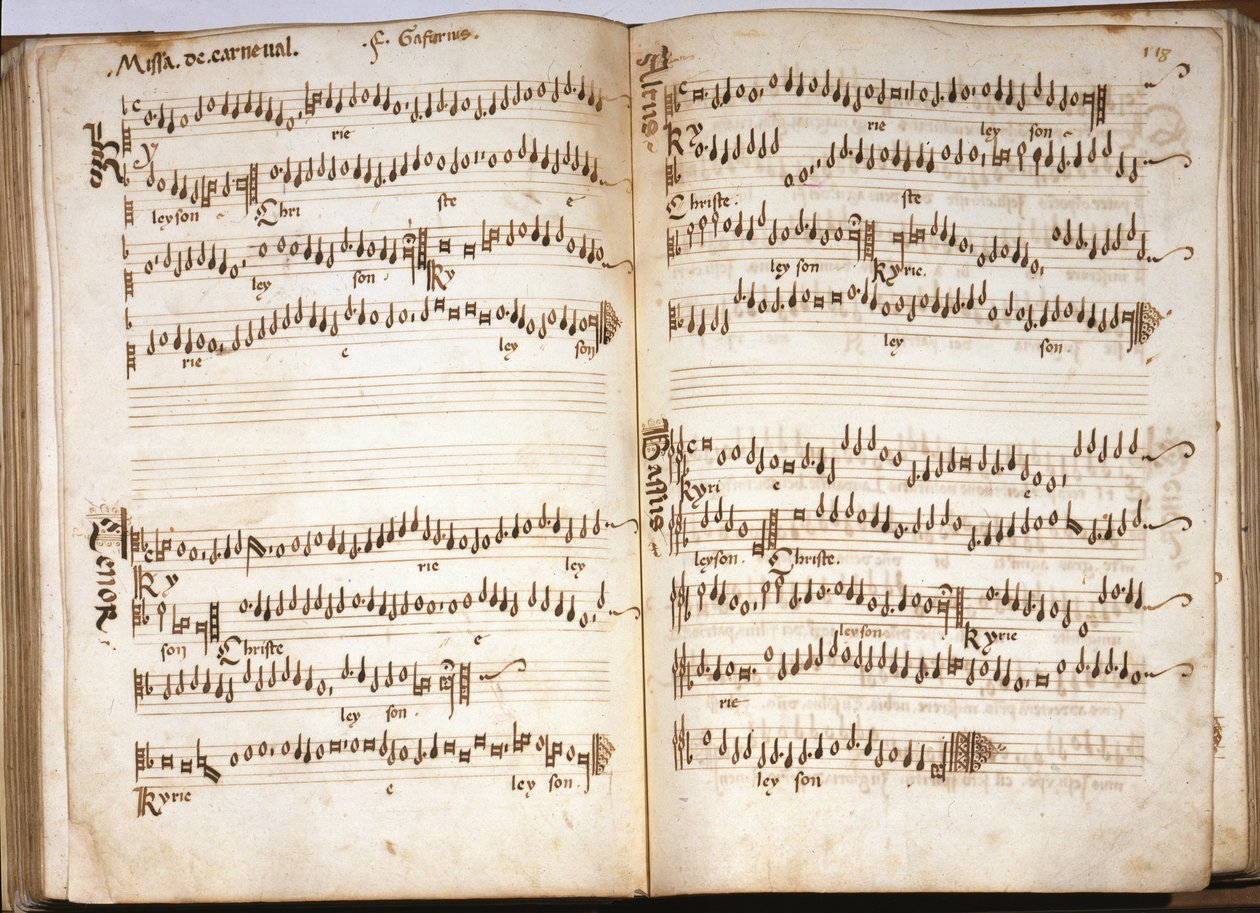 .Missa. de. carneual.
.F. Gafurius.
rie
Ky
leyson e Chri ste e
ley son. Ky
rie e ley son
Tenor
rie ley
Ky
son Christe e
ley son.
Kyrie e ley son.
118
Altus
rie ley son e
Ky
Christe. ste
ley son Kyrie.
ley son
Bassus
Kyri e e
leyson. Christe.
leyson. Kyrie
rie
ley son